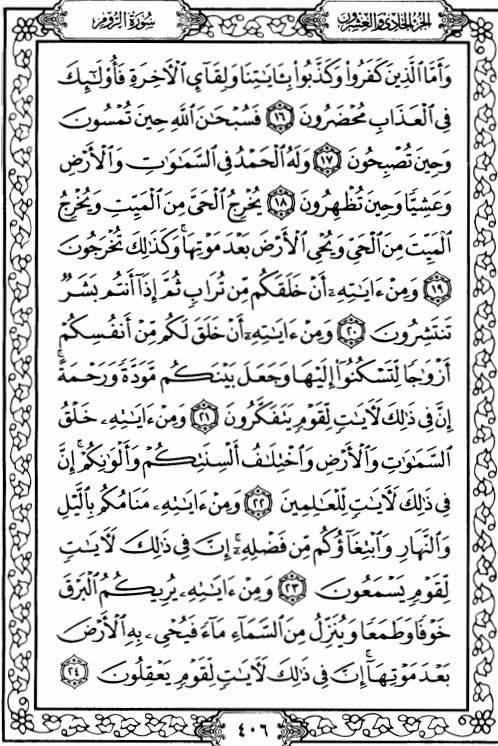 الجزء الحادي والعشرون
سُورَةُ الرُّومِ
وَأَمَّا ٱلَّذِينَ كَفَرُوا۟ وَكَذَّبُوا۟ بِـَٔايَـٰتِنَا وَلِقَآئِ ٱلْـَٔاخِرَةِ فَأُو۟لَـٰٓئِكَ
فِى ٱلْعَذَابِ مُحْضَرُونَ ١٦ فَسُبْحَـٰنَ ٱللَّهِ حِينَ تُمْسُونَ
وَحِينَ تُصْبِحُونَ ١٧ وَلَهُ ٱلْحَمْدُ فِى ٱلسَّمَـٰوَٰتِ وَٱلْأَرْضِ
وَعَشِيًّا وَحِينَ تُظْهِرُونَ ١٨ يُخْرِجُ ٱلْحَىَّ مِنَ ٱلْمَيِّتِ وَيُخْرِجُ
ٱلْمَيِّتَ مِنَ ٱلْحَىِّ وَيُحْىِ ٱلْأَرْضَ بَعْدَ مَوْتِهَا ۚ وَكَذَٰلِكَ تُخْرَجُونَ
١٩ وَمِنْ ءَايَـٰتِهِۦٓ أَنْ خَلَقَكُم مِّن تُرَابٍ ثُمَّ إِذَآ أَنتُم بَشَرٌ
تَنتَشِرُونَ ٢٠ وَمِنْ ءَايَـٰتِهِۦٓ أَنْ خَلَقَ لَكُم مِّنْ أَنفُسِكُمْ
أَزْوَٰجًا لِّتَسْكُنُوٓا۟ إِلَيْهَا وَجَعَلَ بَيْنَكُم مَّوَدَّةً وَرَحْمَةً ۚ
إِنَّ فِى ذَٰلِكَ لَـَٔايَـٰتٍ لِّقَوْمٍ يَتَفَكَّرُونَ ٢١ وَمِنْ ءَايَـٰتِهِۦ خَلْقُ
ٱلسَّمَـٰوَٰتِ وَٱلْأَرْضِ وَٱخْتِلَـٰفُ أَلْسِنَتِكُمْ وَأَلْوَٰنِكُمْ ۚ إِنَّ
فِى ذَٰلِكَ لَـَٔايَـٰتٍ لِّلْعَـٰلِمِينَ ٢٢ وَمِنْ ءَايَـٰتِهِۦ مَنَامُكُم بِٱلَّيْلِ
وَٱلنَّهَارِ وَٱبْتِغَآؤُكُم مِّن فَضْلِهِۦٓ ۚ إِنَّ فِى ذَٰلِكَ لَـَٔايَـٰتٍ
لِّقَوْمٍ يَسْمَعُونَ ٢٣ وَمِنْ ءَايَـٰتِهِۦ يُرِيكُمُ ٱلْبَرْقَ
خَوْفًا وَطَمَعًا وَيُنَزِّلُ مِنَ ٱلسَّمَآءِ مَآءً فَيُحْىِۦ بِهِ ٱلْأَرْضَ
بَعْدَ مَوْتِهَآ ۚ إِنَّ فِى ذَٰلِكَ لَـَٔايَـٰتٍ لِّقَوْمٍ يَعْقِلُونَ ٢٤
٤٠٦